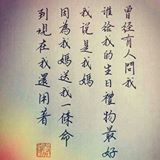 曾經有人問我
誰給我的生日禮物最好
我說是我媽
因為我媽送我一條命
到現在我還用著